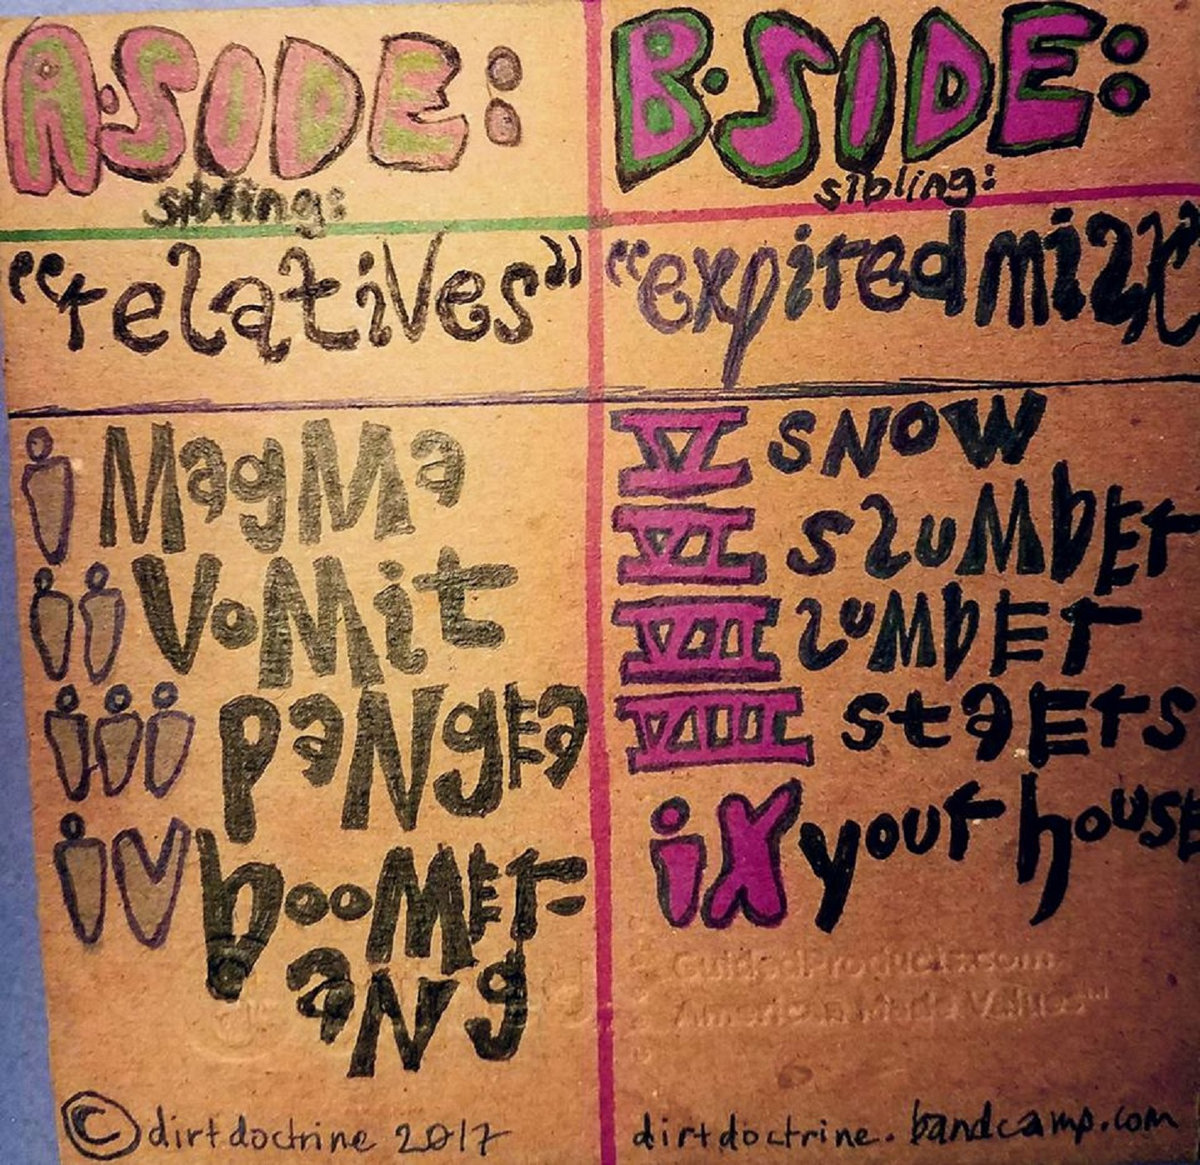 A·SIDE:
siblings:
"relatives"
i Magma
ii Vomit
iii pangea
iv boomer-
ang
© dirt doctrine 2017
B·SIDE:
sibling:
"expired milk"
V snow
VI slumber
VII lumber
VIII staers
ix your house
GuidedProducts.com
American Made Values™
dirtdoctrine.bandcamp.com